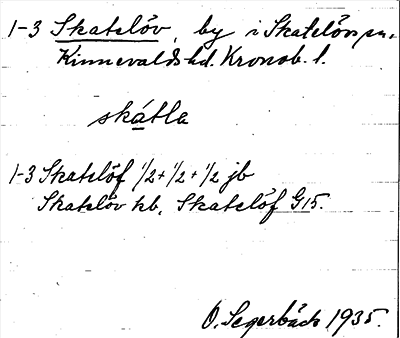 1-3 Skatelöv, by i Skatelövs sn.
Kinnevalds hd. Kronob. l.
skátla
1-3 Skatelöf 1/2 + 1/2 + 1/2 jb
Skatelöv kb, Skatelöf G15.
O. Segerbäck 1935.